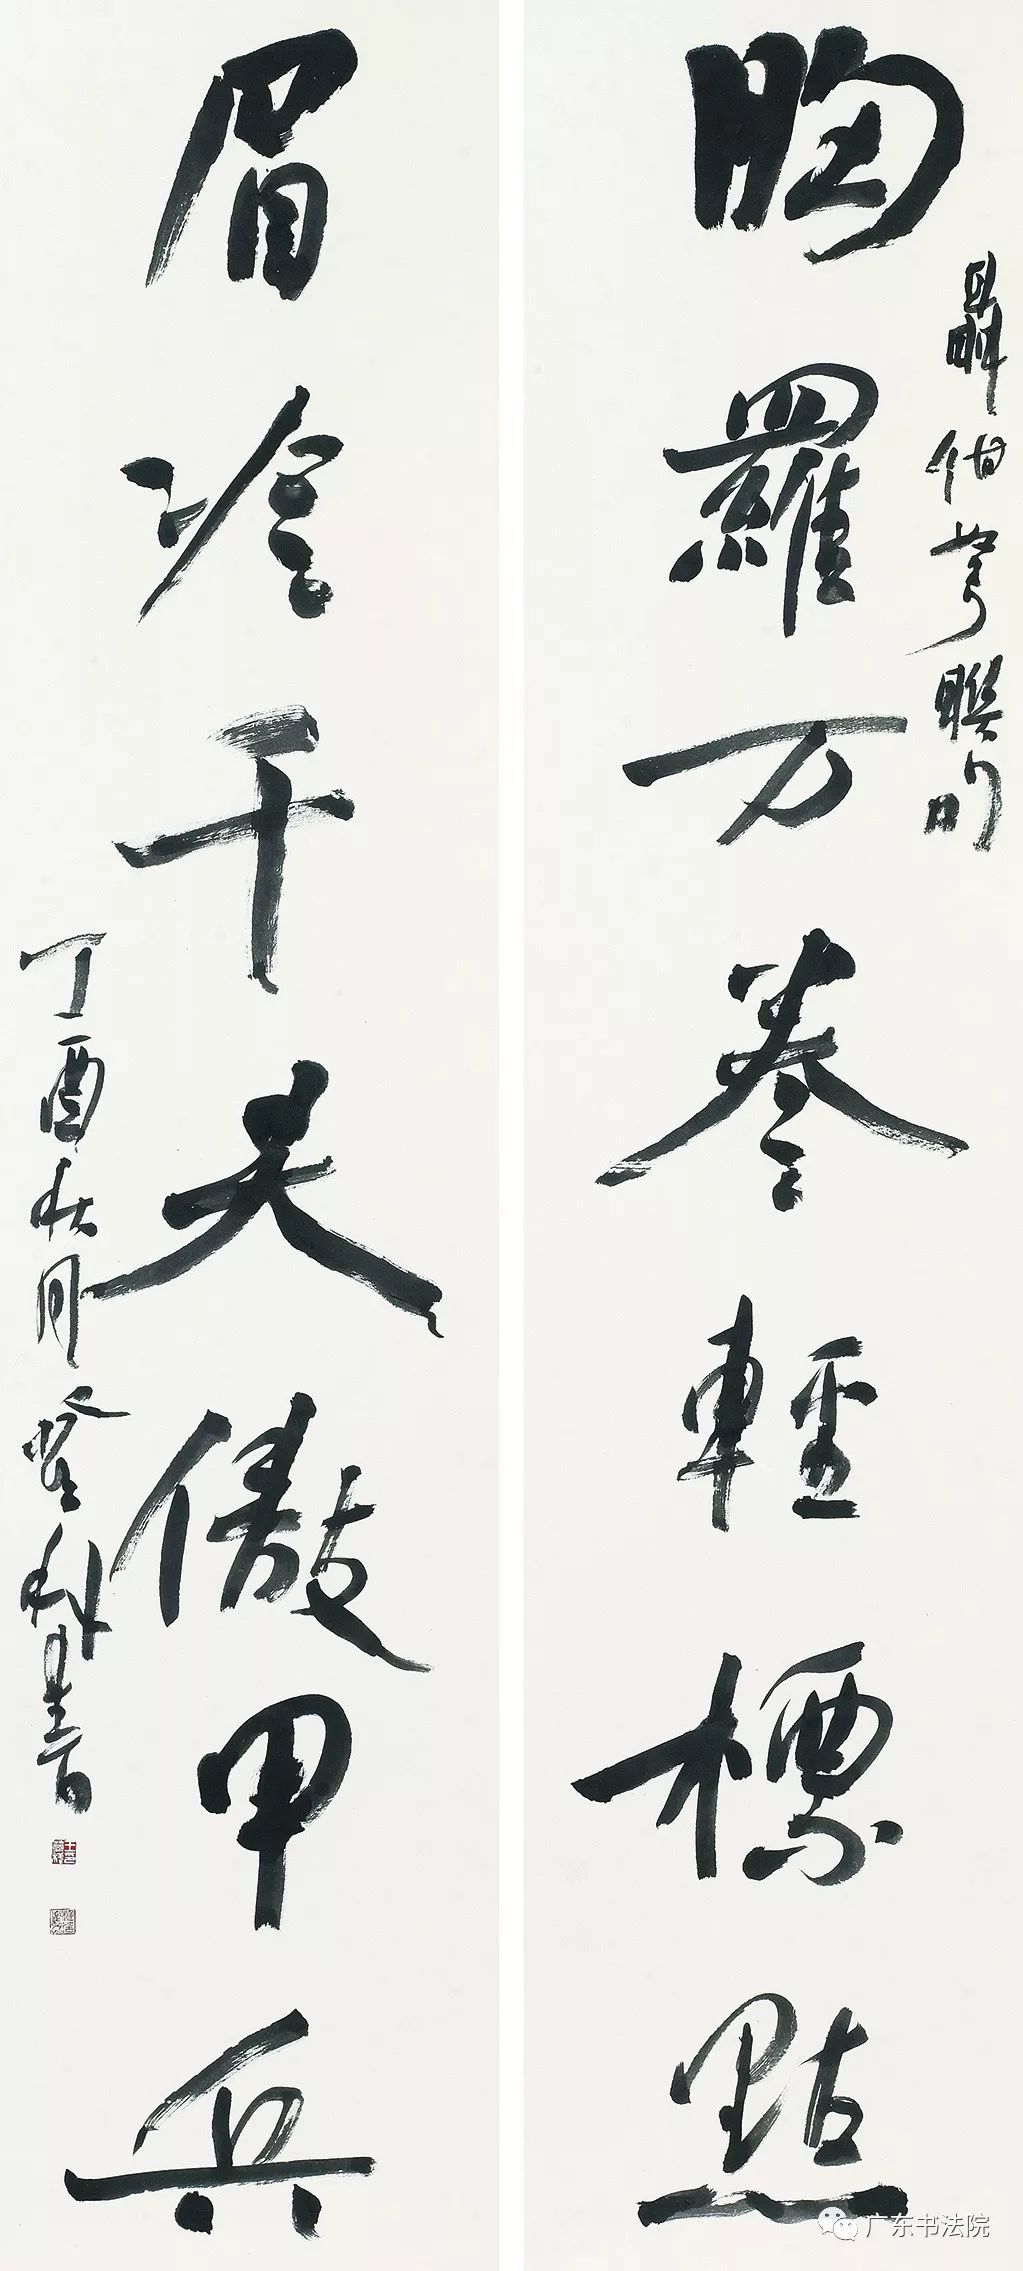 胸羅万卷輕標點
聶紺弩聯句
眉冷千夫傲甲兵
丁酉秋月登科書
广东书法院